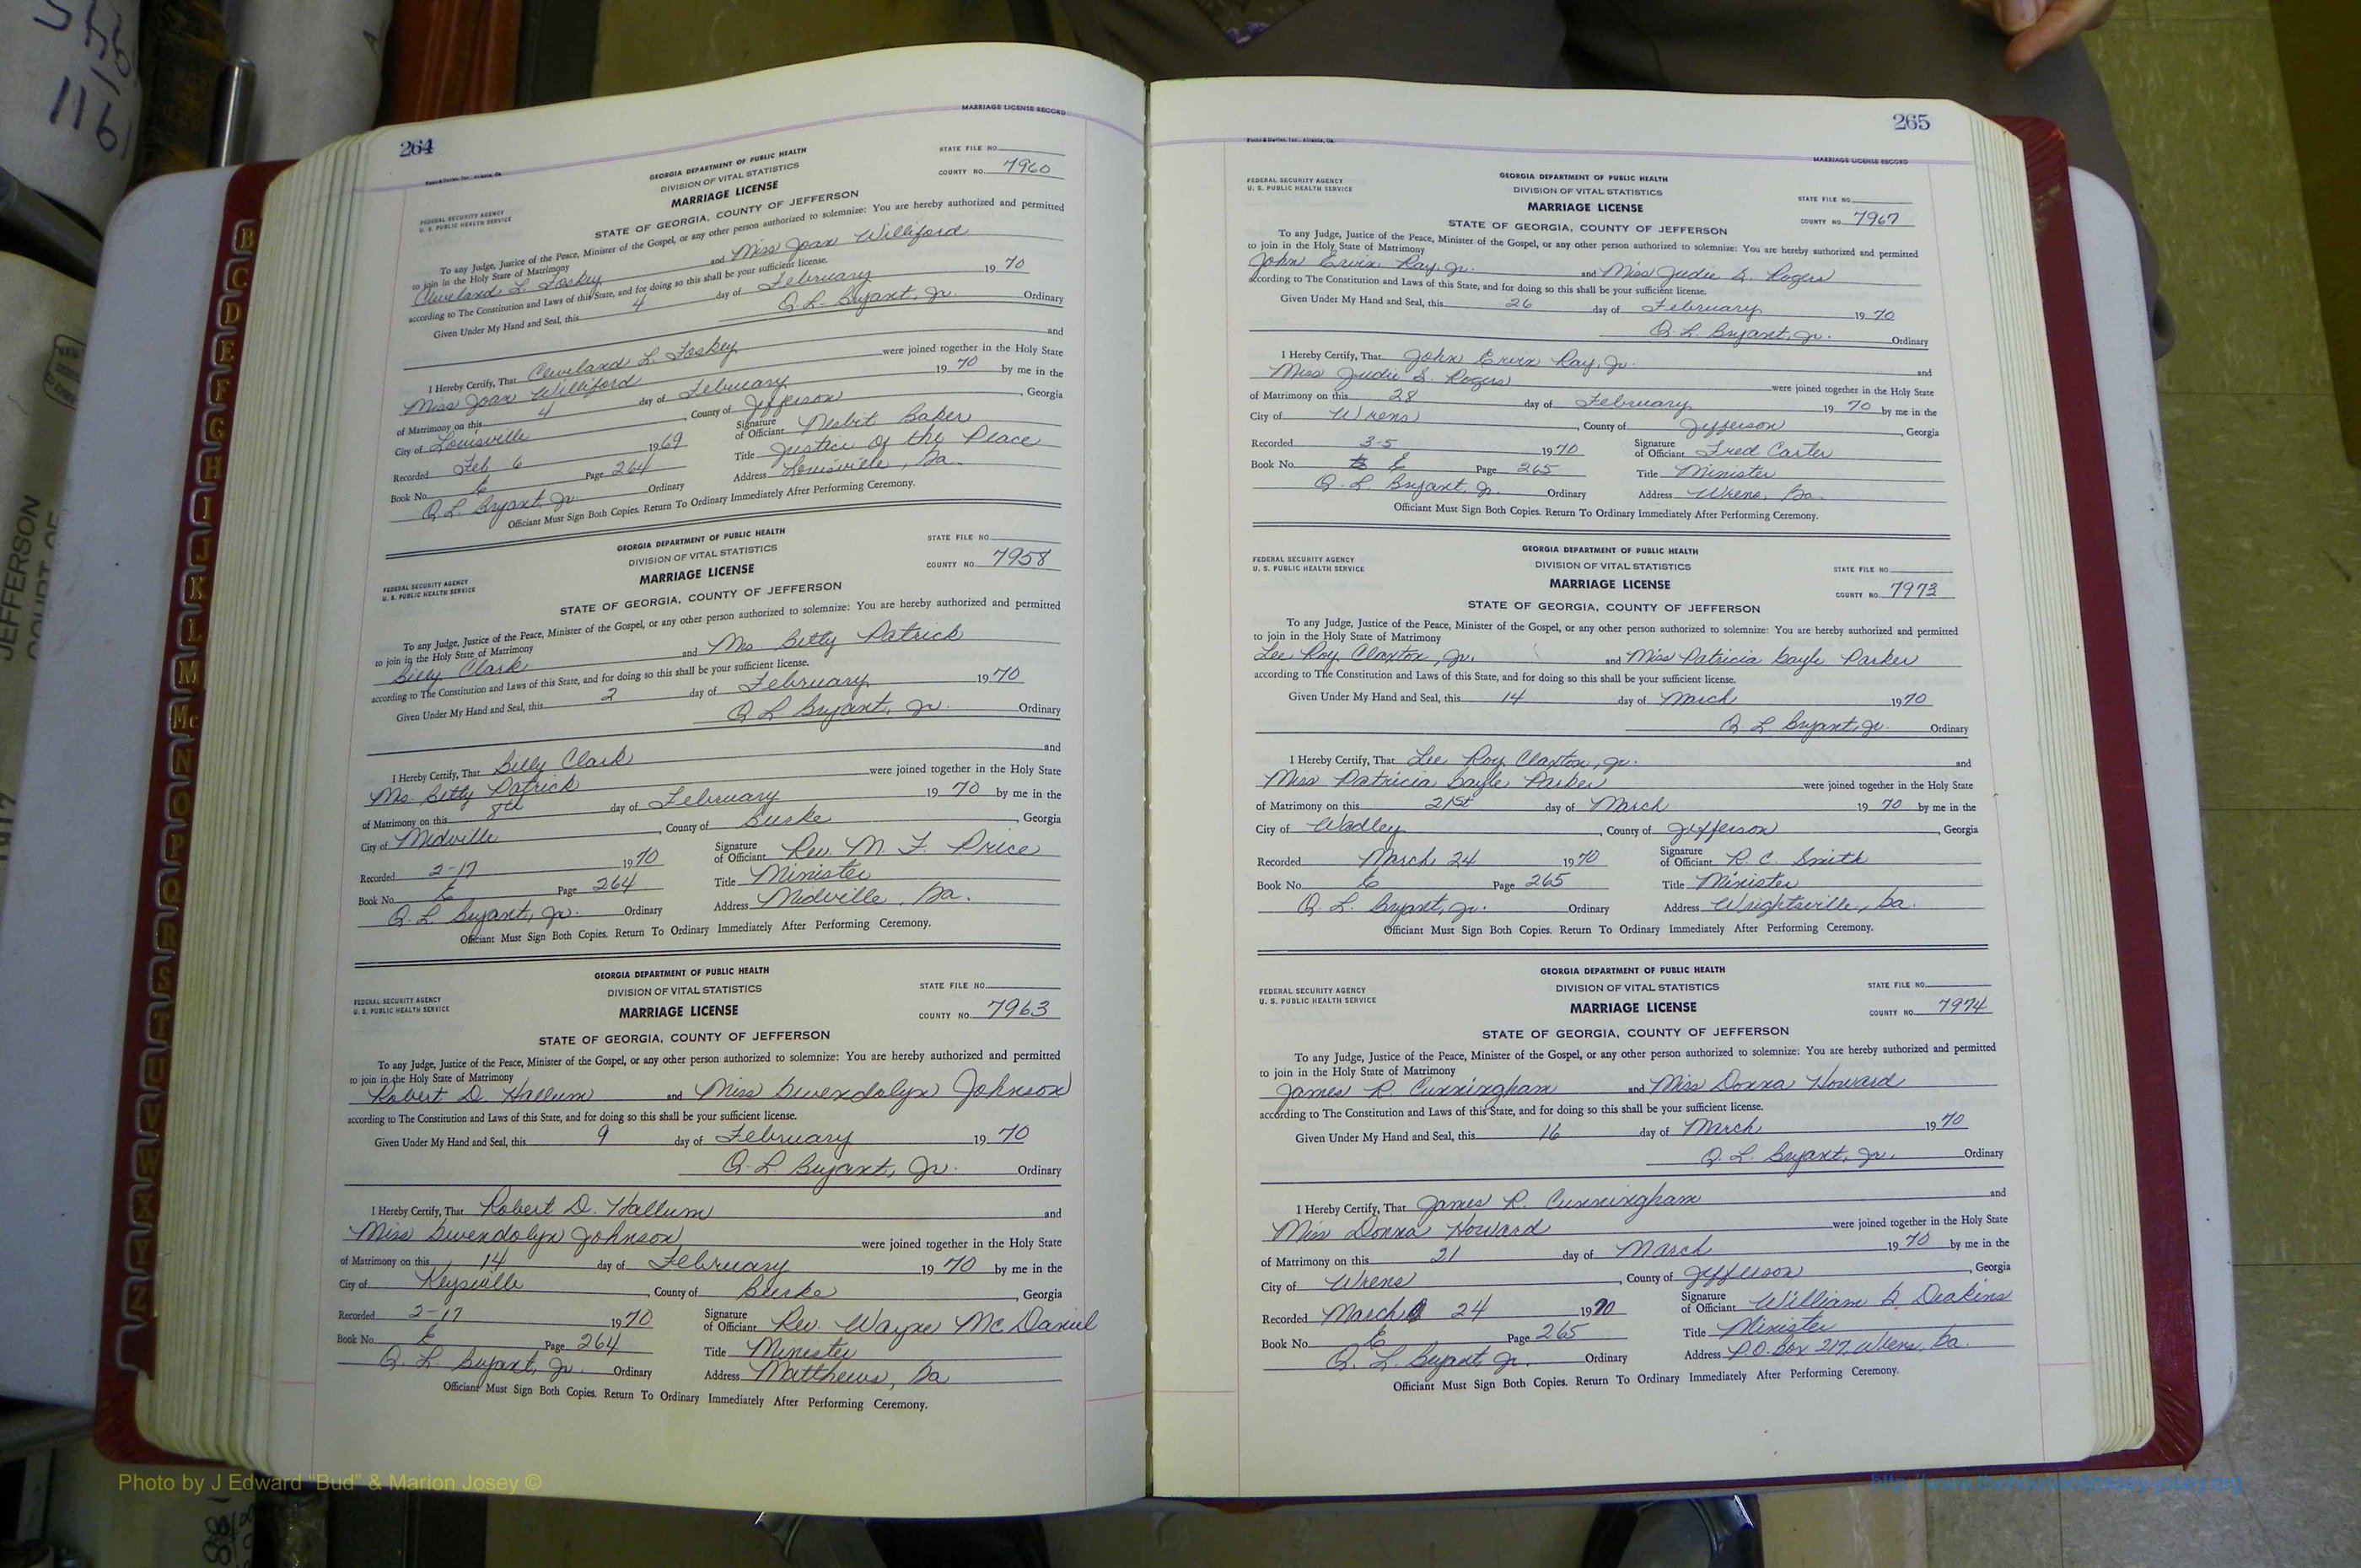 264
MARRIAGE LICENSE RECORD
GEORGIA DEPARTMENT OF PUBLIC HEALTH
DIVISION OF VITAL STATISTICS
MARRIAGE LICENSE
STATE OF GEORGIA, COUNTY OF JEFFERSON
FEDERAL SECURITY AGENCY
U. S. PUBLIC HEALTH SERVICE
STATE FILE NO.
COUNTY NO. 7960
To any Judge, Justice of the Peace, Minister of the Gospel, or any other person authorized to solemnize: You are hereby authorized and permitted
to join in the Holy State of Matrimony
Cleveland L. Foskey and Miss Joan Williford
according to The Constitution and Laws of this State, and for doing so this shall be your sufficient license.
Given Under My Hand and Seal, this 4 day of February 1970
Q. L. Bryant, Jr. Ordinary
I Hereby Certify, That Cleveland L. Foskey and
Miss Joan Williford were joined together in the Holy State
of Matrimony on this 4 day of February 1970 by me in the
City of Louisville, County of Jefferson, Georgia
Recorded Feb 6 1969 Signature of Officiant Nesbit Baker
Book No. E Page 264 Title Justice of the Peace
Q L Bryant, Jr. Ordinary Address Louisville, Ga.
Officiant Must Sign Both Copies. Return To Ordinary Immediately After Performing Ceremony.
GEORGIA DEPARTMENT OF PUBLIC HEALTH
DIVISION OF VITAL STATISTICS
MARRIAGE LICENSE
STATE OF GEORGIA, COUNTY OF JEFFERSON
FEDERAL SECURITY AGENCY
U. S. PUBLIC HEALTH SERVICE
STATE FILE NO.
COUNTY NO. 7958
To any Judge, Justice of the Peace, Minister of the Gospel, or any other person authorized to solemnize: You are hereby authorized and permitted
to join in the Holy State of Matrimony
Billy Clark and Mrs Betty Patrick
according to The Constitution and Laws of this State, and for doing so this shall be your sufficient license.
Given Under My Hand and Seal, this 2 day of February 1970
Q L Bryant, Jr. Ordinary
I Hereby Certify, That Billy Clark and
Mrs. Betty Patrick were joined together in the Holy State
of Matrimony on this 8th day of February 1970 by me in the
City of Midville, County of Burke, Georgia
Recorded 2-17 1970 Signature of Officiant Rev. M. F. Price
Book No. E Page 264 Title Minister
Q. L. Bryant, Jr. Ordinary Address Midville, Ga.
Officiant Must Sign Both Copies. Return To Ordinary Immediately After Performing Ceremony.
GEORGIA DEPARTMENT OF PUBLIC HEALTH
DIVISION OF VITAL STATISTICS
MARRIAGE LICENSE
STATE OF GEORGIA, COUNTY OF JEFFERSON
FEDERAL SECURITY AGENCY
U. S. PUBLIC HEALTH SERVICE
STATE FILE NO.
COUNTY NO. 7963
To any Judge, Justice of the Peace, Minister of the Gospel, or any other person authorized to solemnize: You are hereby authorized and permitted
to join in the Holy State of Matrimony
Robert D. Hallum and Miss Gwendolyn Johnson
according to The Constitution and Laws of this State, and for doing so this shall be your sufficient license.
Given Under My Hand and Seal, this 9 day of February 1970
Q. L. Bryant, Jr. Ordinary
I Hereby Certify, That Robert D. Hallum and
Miss Gwendolyn Johnson were joined together in the Holy State
of Matrimony on this 14 day of February 1970 by me in the
City of Keysville, County of Burke, Georgia
Recorded 2-17 1970 Signature of Officiant Rev. Wayne McDaniel
Book No. E Page 264 Title Minister
Q. L. Bryant, Jr. Ordinary Address Matthews, Ga
Officiant Must Sign Both Copies. Return To Ordinary Immediately After Performing Ceremony.
265
MARRIAGE LICENSE RECORD
GEORGIA DEPARTMENT OF PUBLIC HEALTH
DIVISION OF VITAL STATISTICS
MARRIAGE LICENSE
STATE OF GEORGIA, COUNTY OF JEFFERSON
FEDERAL SECURITY AGENCY
U. S. PUBLIC HEALTH SERVICE
STATE FILE NO.
COUNTY NO. 7967
To any Judge, Justice of the Peace, Minister of the Gospel, or any other person authorized to solemnize: You are hereby authorized and permitted
to join in the Holy State of Matrimony
John Ervin Ray, Jr. and Miss Judie S. Rogers
according to The Constitution and Laws of this State, and for doing so this shall be your sufficient license.
Given Under My Hand and Seal, this 26 day of February 1970
Q. L. Bryant, Jr. Ordinary
I Hereby Certify, That John Ervin Ray, Jr. and
Miss Judie S. Rogers were joined together in the Holy State
of Matrimony on this 28 day of February 1970 by me in the
City of Wrens, County of Jefferson, Georgia
Recorded 3-5 1970 Signature of Officiant Fred Carter
Book No. E Page 265 Title Minister
Q. L. Bryant, Jr. Ordinary Address Wrens, Ga.
Officiant Must Sign Both Copies. Return To Ordinary Immediately After Performing Ceremony.
GEORGIA DEPARTMENT OF PUBLIC HEALTH
DIVISION OF VITAL STATISTICS
MARRIAGE LICENSE
STATE OF GEORGIA, COUNTY OF JEFFERSON
FEDERAL SECURITY AGENCY
U. S. PUBLIC HEALTH SERVICE
STATE FILE NO.
COUNTY NO. 7973
To any Judge, Justice of the Peace, Minister of the Gospel, or any other person authorized to solemnize: You are hereby authorized and permitted
to join in the Holy State of Matrimony
Lee Roy Claxton, Jr. and Miss Patricia Gayle Parker
according to The Constitution and Laws of this State, and for doing so this shall be your sufficient license.
Given Under My Hand and Seal, this 14 day of March 1970
Q. L Bryant, Jr. Ordinary
I Hereby Certify, That Lee Roy Claxton, Jr. and
Miss Patricia Gayle Parker were joined together in the Holy State
of Matrimony on this 21st day of March 1970 by me in the
City of Wadley, County of Jefferson, Georgia
Recorded March 24 1970 Signature of Officiant R. C. Smith
Book No. E Page 265 Title Minister
Q. L. Bryant, Jr. Ordinary Address Wrightsville, Ga.
Officiant Must Sign Both Copies. Return To Ordinary Immediately After Performing Ceremony.
GEORGIA DEPARTMENT OF PUBLIC HEALTH
DIVISION OF VITAL STATISTICS
MARRIAGE LICENSE
STATE OF GEORGIA, COUNTY OF JEFFERSON
FEDERAL SECURITY AGENCY
U. S. PUBLIC HEALTH SERVICE
STATE FILE NO.
COUNTY NO. 7974
To any Judge, Justice of the Peace, Minister of the Gospel, or any other person authorized to solemnize: You are hereby authorized and permitted
to join in the Holy State of Matrimony
James R. Cunningham and Miss Donna Howard
according to The Constitution and Laws of this State, and for doing so this shall be your sufficient license.
Given Under My Hand and Seal, this 16 day of March 1970
Q. L. Bryant, Jr. Ordinary
I Hereby Certify, That James R. Cunningham and
Miss Donna Howard were joined together in the Holy State
of Matrimony on this 21 day of March 1970 by me in the
City of Wrens, County of Jefferson, Georgia
Recorded March 24 1970 Signature of Officiant William G Deakins
Book No. E Page 265 Title Minister
Q. L. Bryant Jr. Ordinary Address P.O. Box 217, Wrens, Ga.
Officiant Must Sign Both Copies. Return To Ordinary Immediately After Performing Ceremony.
B
C
D
E
F
G
H
I
J
K
L
M
Mc
N
O
P
Q
R
S
T
U
V
W
X
Y
Z
JEFFERSON
Photo by J Edward "Bud" & Marion Josey ©